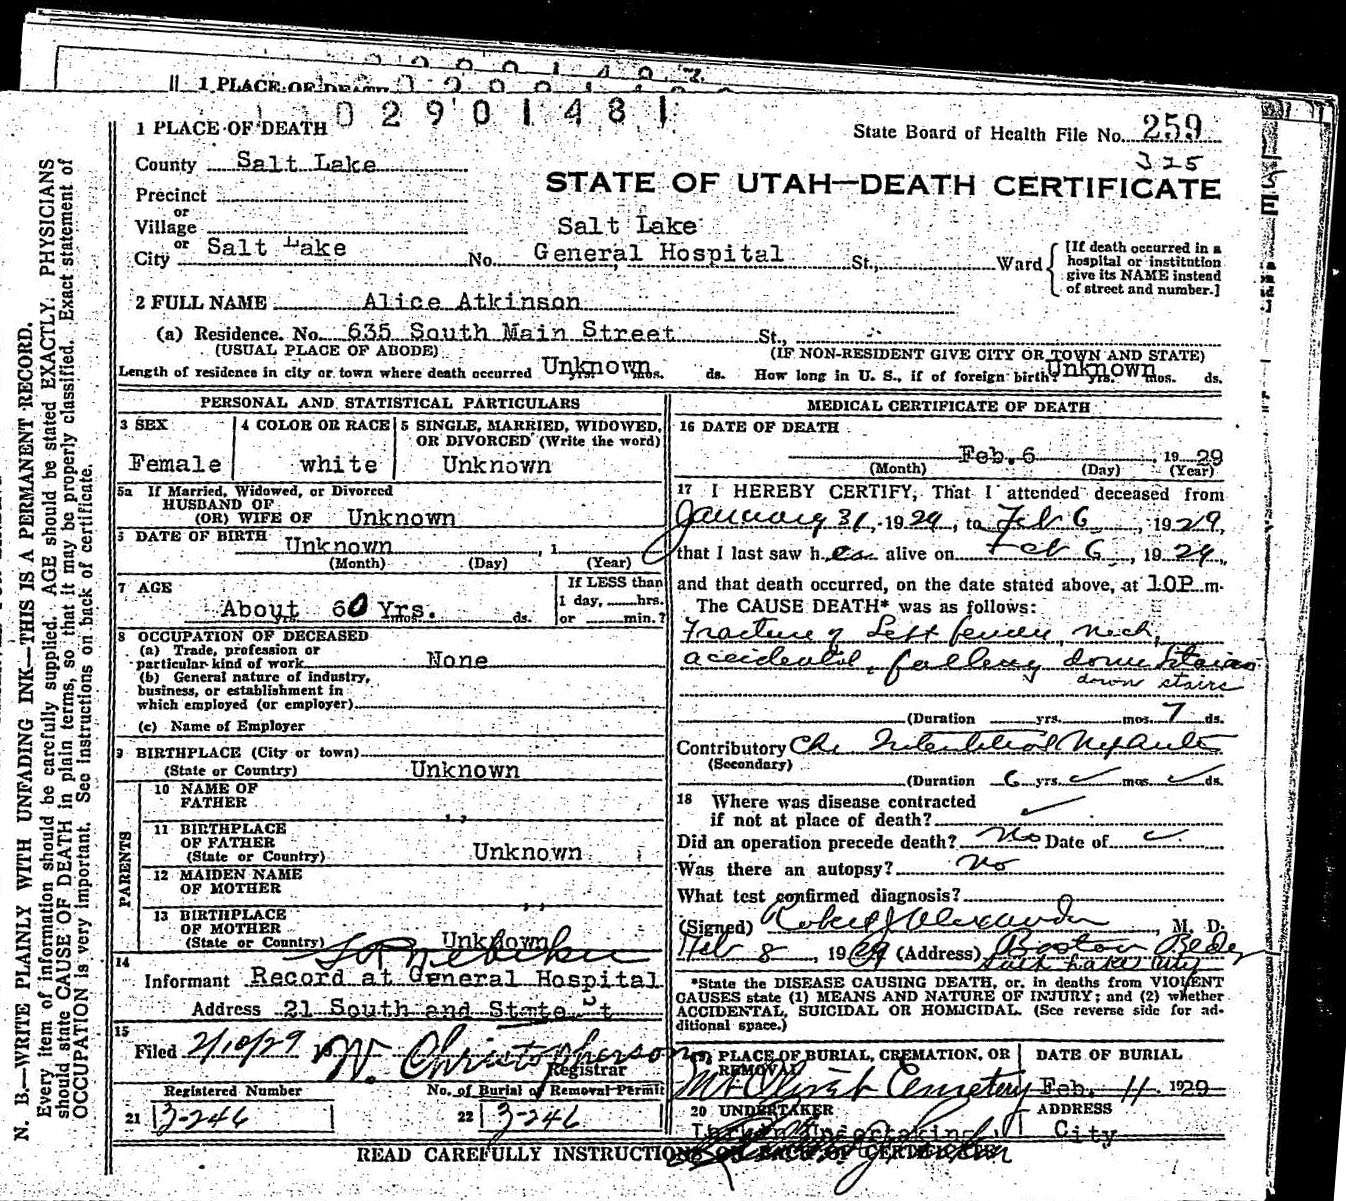 1 PLACE OF DEATH
02901481
1 PLACE OF DEATH
State Board of Health File No. 259
325
County Salt Lake
STATE OF UTAH—DEATH CERTIFICATE
Precinct
or
Village
Salt Lake
or
City Salt Lake No. General Hospital St., Ward
[If death occurred in a
hospital or institution
give its NAME instead
of street and number.]
2 FULL NAME Alice Atkinson
(a) Residence. No. 635 South Main Street St.,
(USUAL PLACE OF ABODE) (IF NON-RESIDENT GIVE CITY OR TOWN AND STATE)
Length of residence in city or town where death occurred Unknown yrs. mos. ds. How long in U. S., if of foreign birth? Unknown yrs. mos. ds.
PERSONAL AND STATISTICAL PARTICULARS
3 SEX 4 COLOR OR RACE 5 SINGLE, MARRIED, WIDOWED,
OR DIVORCED (Write the word)
Female white Unknown
5a If Married, Widowed, or Divorced
HUSBAND OF
(OR) WIFE OF Unknown
6 DATE OF BIRTH Unknown , 1
(Month) (Day) (Year)
7 AGE
About 60 Yrs. mos. ds.
If LESS than
1 day, hrs.
or min.?
8 OCCUPATION OF DECEASED
(a) Trade, profession or
particular kind of work None
(b) General nature of industry,
business, or establishment in
which employed (or employer)
(c) Name of Employer
9 BIRTHPLACE (City or town)
(State or Country) Unknown
PARENTS
10 NAME OF
FATHER ,,
11 BIRTHPLACE
OF FATHER
(State or Country) Unknown
12 MAIDEN NAME
OF MOTHER ,,
13 BIRTHPLACE
OF MOTHER
(State or Country) Unknown
14
Informant Record at General Hospital
Address 21 South and State St
15
Filed 2/10/29 W. Christopherson
Registrar
Registered Number No. of Burial of Removal Permit
21 3-246 22 3-246
MEDICAL CERTIFICATE OF DEATH
16 DATE OF DEATH
Feb. 6 19 29
(Month) (Day) (Year)
17 I HEREBY CERTIFY, That I attended deceased from
January 31, 1929, to Feb 6, 1929,
that I last saw her alive on Feb 6, 1929,
and that death occurred, on the date stated above, at 10P m.
The CAUSE DEATH* was as follows:
Fracture of Left femur neck,
accidental, falling down stairs
down stairs
(Duration yrs. mos. 7 ds.
Contributory Chr Interstitial Nephritis
(Secondary)
(Duration 6 yrs. mos. ds.
18 Where was disease contracted
if not at place of death?
Did an operation precede death? No Date of
Was there an autopsy? No
What test confirmed diagnosis?
(Signed) Robert J Alexander, M. D.
Feb 8, 1929 (Address) Boston Bldg
Salt Lake City
*State the DISEASE CAUSING DEATH, or, in deaths from VIOLENT
CAUSES state (1) MEANS AND NATURE OF INJURY; and (2) whether
ACCIDENTAL, SUICIDAL OR HOMICIDAL. (See reverse side for ad-
ditional space.)
19 PLACE OF BURIAL, CREMATION, OR
REMOVAL
DATE OF BURIAL
Mt Olivet Cemetery Feb. 11 1929
20 UNDERTAKER ADDRESS
Larkin Undertaking City
READ CAREFULLY INSTRUCTIONS ON BACK OF CERTIFICATE
N. B.—WRITE PLAINLY WITH UNFADING INK—THIS IS A PERMANENT RECORD.
Every item of information should be carefully supplied. AGE should be stated EXACTLY. PHYSICIANS
should state CAUSE OF DEATH in plain terms, so that it may be properly classified. Exact statement of
OCCUPATION is very important. See instructions on back of certificate.